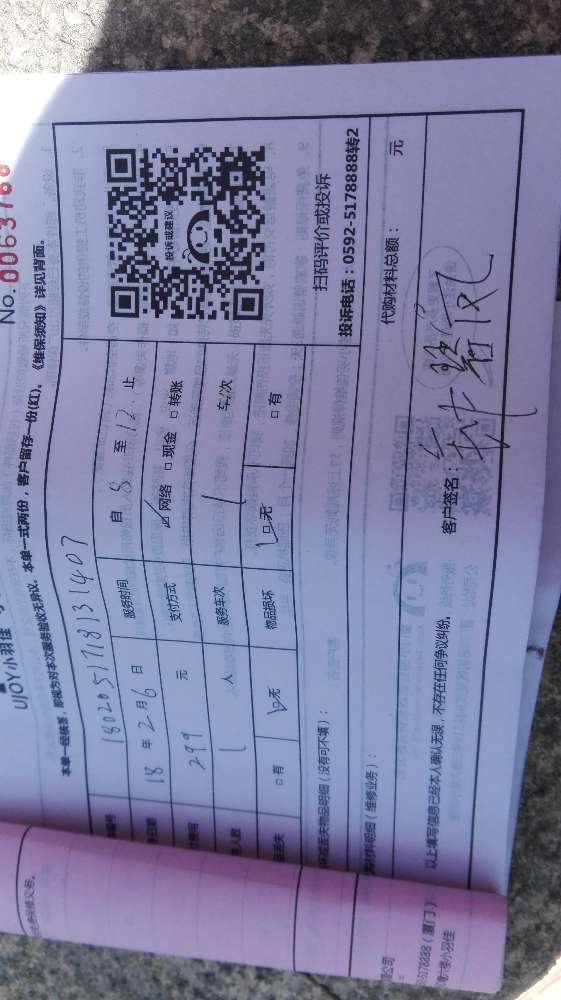 No. 0063788
UJOY小羽佳
本单一经核签，即视为对本次服务验收无异议。本单一式两份，客户留存一份(红)。《维保须知》详见背面。
编号 1802051718131407
日期 18 年 2 月 6 日 服务时间 自 8 至 12 止
299 元 支付方式 ☑网络 □现金 □转账
人数 1 人 服务车次 1 车/次
丢失 □有 ☑无 物品损坏 ☑无 □有
投诉或建议
扫码评价或投诉
投诉电话：0592-5178888转2
丢失物品明细（没有可不填）：
材料明细（维修业务）：
代购材料总额： 元
以上填写信息已经本人确认无误，不存在任何争议纠纷。
客户签名：
限公司
-5178888（厦门）
楼小羽佳